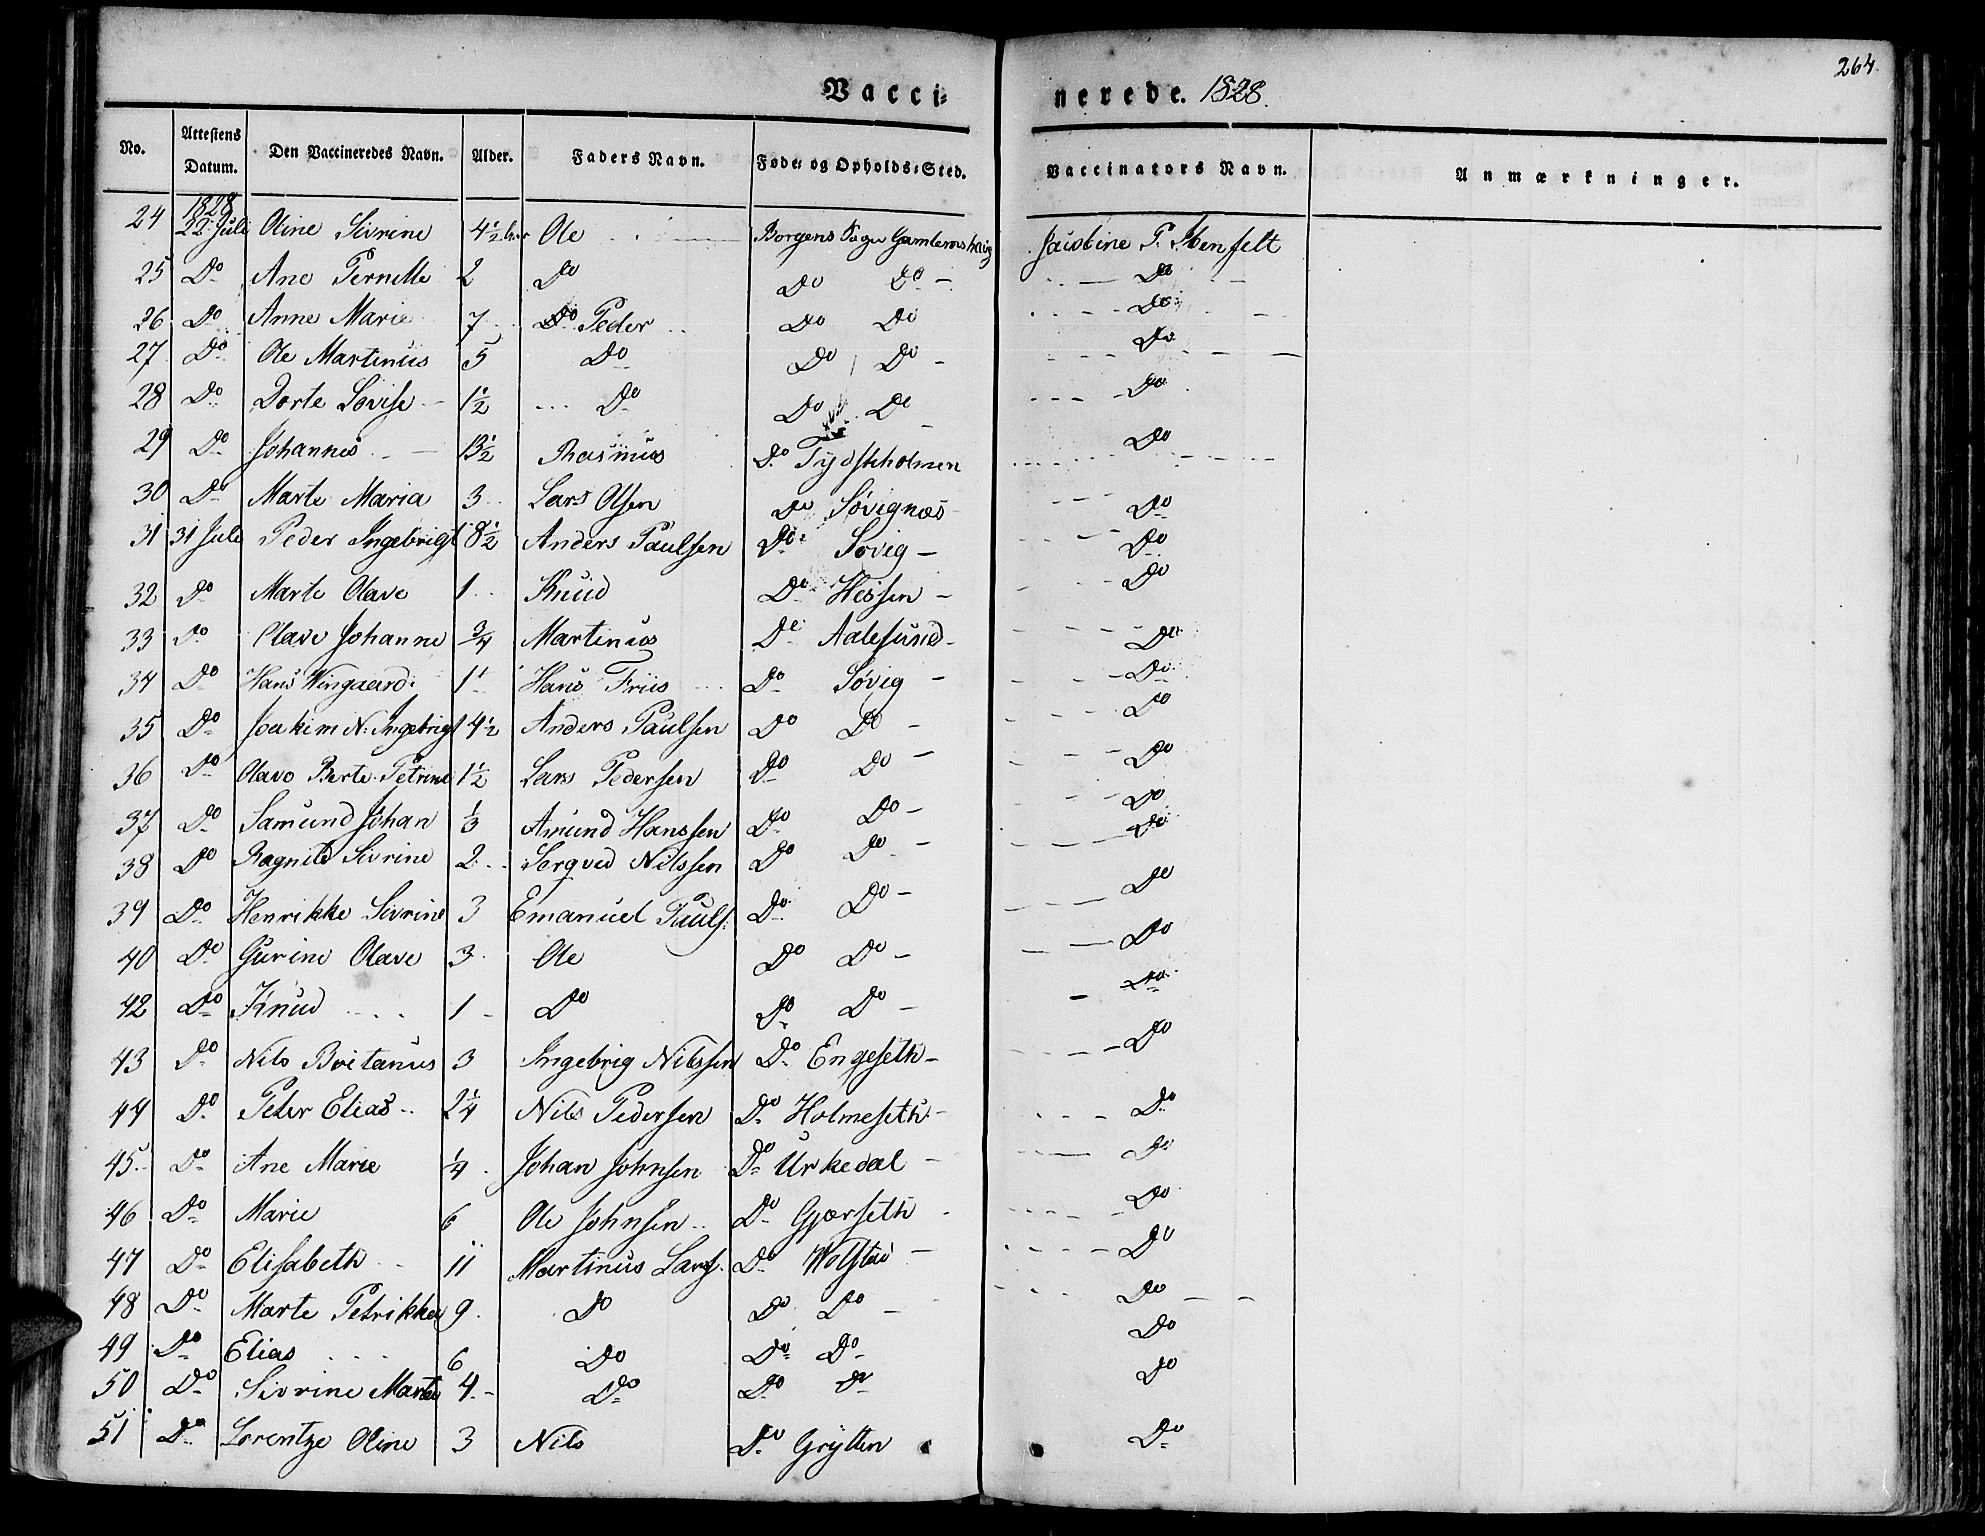 264.
Vacci-
nerede. 1828.
No. Attestens Datum. Den Vaccineredes Navn. Alder. Faders Navn. Føde- og Opholds-Sted. Vaccinators Navn. Anmærkninger.
1828
24 22 Juli Oline Sivrine 4½ Ole Borgens Sogn Gamlemshaug Jacobine P.
25 Do Ane Pernille 2 Do Do Do - Do
26 Do Anne Marie 7 Peder Do Do Do
27 Do Ole Martinus 5 Do Do Do - Do
28 Do Dorte Lovise 1½ Do Do Do Do
29 Do Johannes 13½ Rasmus Do Tydskholmen Do
30 Do Marte Maria 3 Lars Olsen Do Søvignæs Do
31 31 Juli Peder Ingebrigt 8½ Anders Paulsen Do Søvig - Do
32 Do Marte Olave 1 Knud Do Hessen - Do
33 Do Olave Johanne ¾ Martinus Do Aalesund - Do
34 Do Hans Wingaard 1 Hans Friis Do Søvig - Do
35 Do Joakim N: Ingebrigt 4½ Anders Paulsen Do Do - Do
36 Do Olavo Berte Petrine 1½ Lars Pedersen Do Do - Do
37 Do Samund Johan ⅓ Amund Hanssen Do Do - Do
38 Do Ragnile Sivrine 2 Nilssen Do Do - Do
39 Do Henrikke Sivrine 3 Emanuel Pauls: Do Do - Do
40 Do Gurine Olave 3 Ole Do Do - Do
42 Do Knud 1 Do Do Do - Do
43 Do Nils Britanus 3 Ingebrig Nilssen Do Engeseth - Do
44 Do Peter Elias 2¼ Nils Pedersen Do Holmeseth - Do
45 Do Ane Marie ¼ Johan Johnsen Do Urkedal - Do
46 Do Marie 6 Ole Johnsen Do Gjærseth - Do
47 Do Elisabeth 11 Martinus Lars. Do Wolstad - Do
48 Do Marte Petrikka 9 Do Do Do - Do
49 Do Elias 6 Do Do Do Do
50 Do Sivrine Marte 4 Do Do Do Do
51 Do Lorentze Oline 3 Nils Do Grytten Do